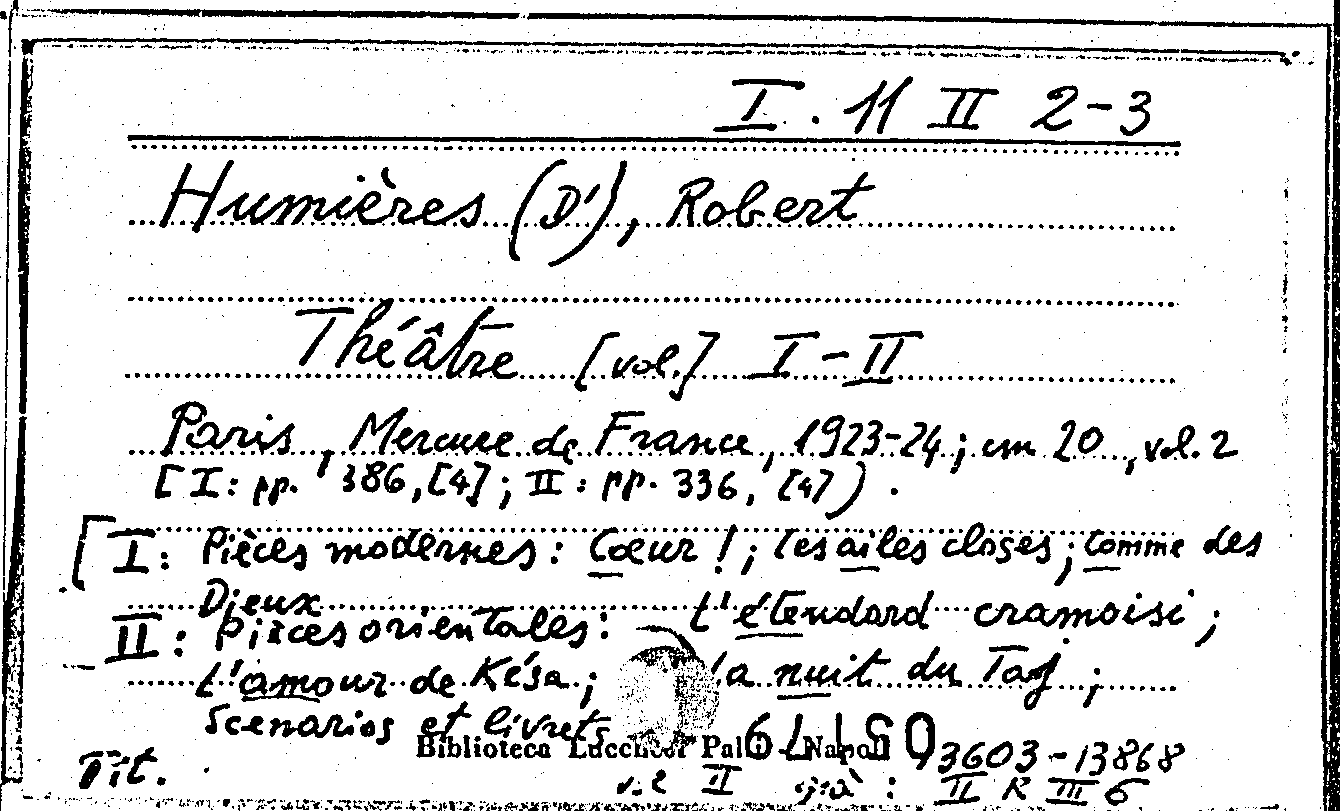 I. 11 II 2-3
Humières (D'), Robert
Théâtre [vol.] I-II
Paris, Mercure de France, 1923-24; cm 20, vol. 2
[I: pp. 386, [4]; II: pp. 336, [4]).
[I: Pièces modernes: Cœur!; Les ailes closes; Comme des
Dieux L'étendard cramoisi;
II: Pièces orientales:
L'amour de Késa; La nuit du Taj;
Scenarios et livrets
Biblioteca Lucchesi Palli - Napoli
13603-13868
Tit. vol II già: II R III 6